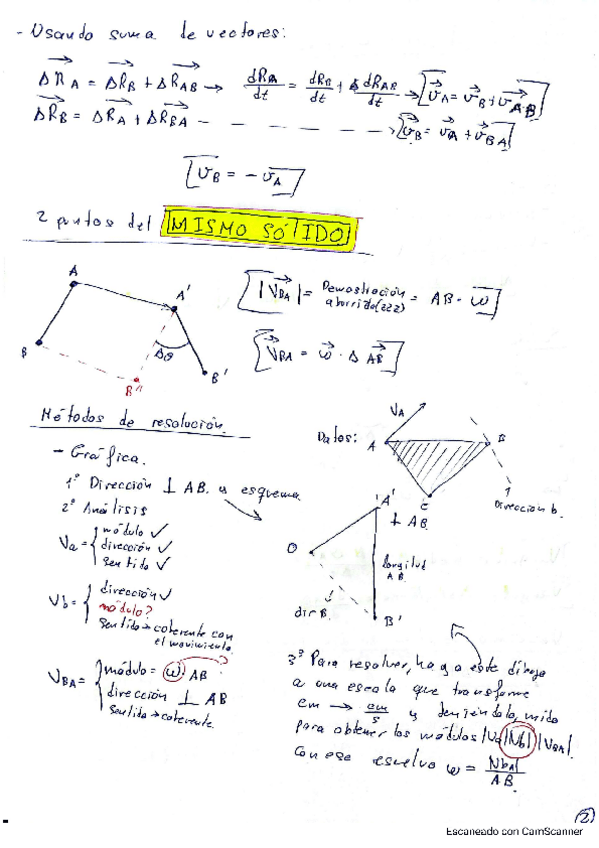 - Usando suma de vectores:
ΔR_A = ΔR_B + ΔR_AB → dR_A/dt = dR_B/dt + dR_AB/dt → [v_A = v_B + v_AB]
ΔR_B = ΔR_A + ΔR_BA - - - - - → [v_B = v_A + v_BA]
[v_B = - v_A]
2 puntos del MISMO SÓLIDO
A
A'
B
Δθ
B'
B"
[|V_BA| = Demostración aburrida(zzz) = AB · ω]
[V_BA = ω · Δ AB]
Métodos de resolución.
- Gráfica.
1º Dirección ⊥ AB. y esquema
2º Análisis
Va = { módulo ✓
dirección ✓
sentido ✓
Vb = { dirección ✓
módulo?
sentido → coherente con
el movimiento.
V_BA = { módulo = ω AB
dirección ⊥ AB
sentido → coherente
Datos:
V_A
A
B
C
Dirección b.
A'
⊥ AB.
O
longitud
AB
dir B.
B'
3º Para resolver, hago este dibujo
a una escala que transforme
cm → cm/s y teniéndolo, mido
para obtener los módulos |Va| |Vb| |V_BA|.
Con eso resuelvo ω = |V_BA|/AB.
2
Escaneado con CamScanner